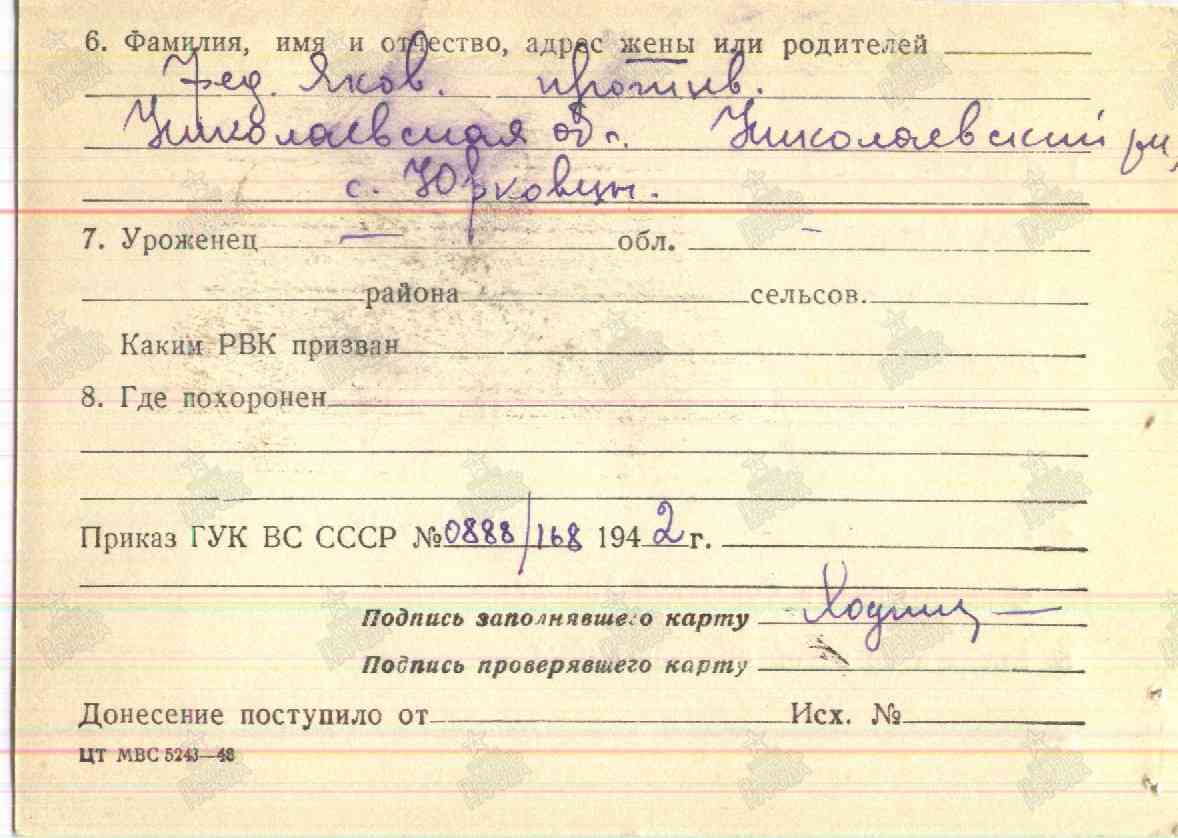 6. Фамилия, имя и отчество, адрес жены или родителей
Фед. Яков. против.
Николаевская об. Николаевский
с. Юрковцы.
7. Уроженец — обл. –
района сельсов.
Каким РВК призван
8. Где похоронен
Приказ ГУК ВС СССР № 0888/168 1942 г.
Подпись заполнявшего карту
Подпись проверявшего карту
Донесение поступило от Исх. №
ЦТ МВС 5243—48